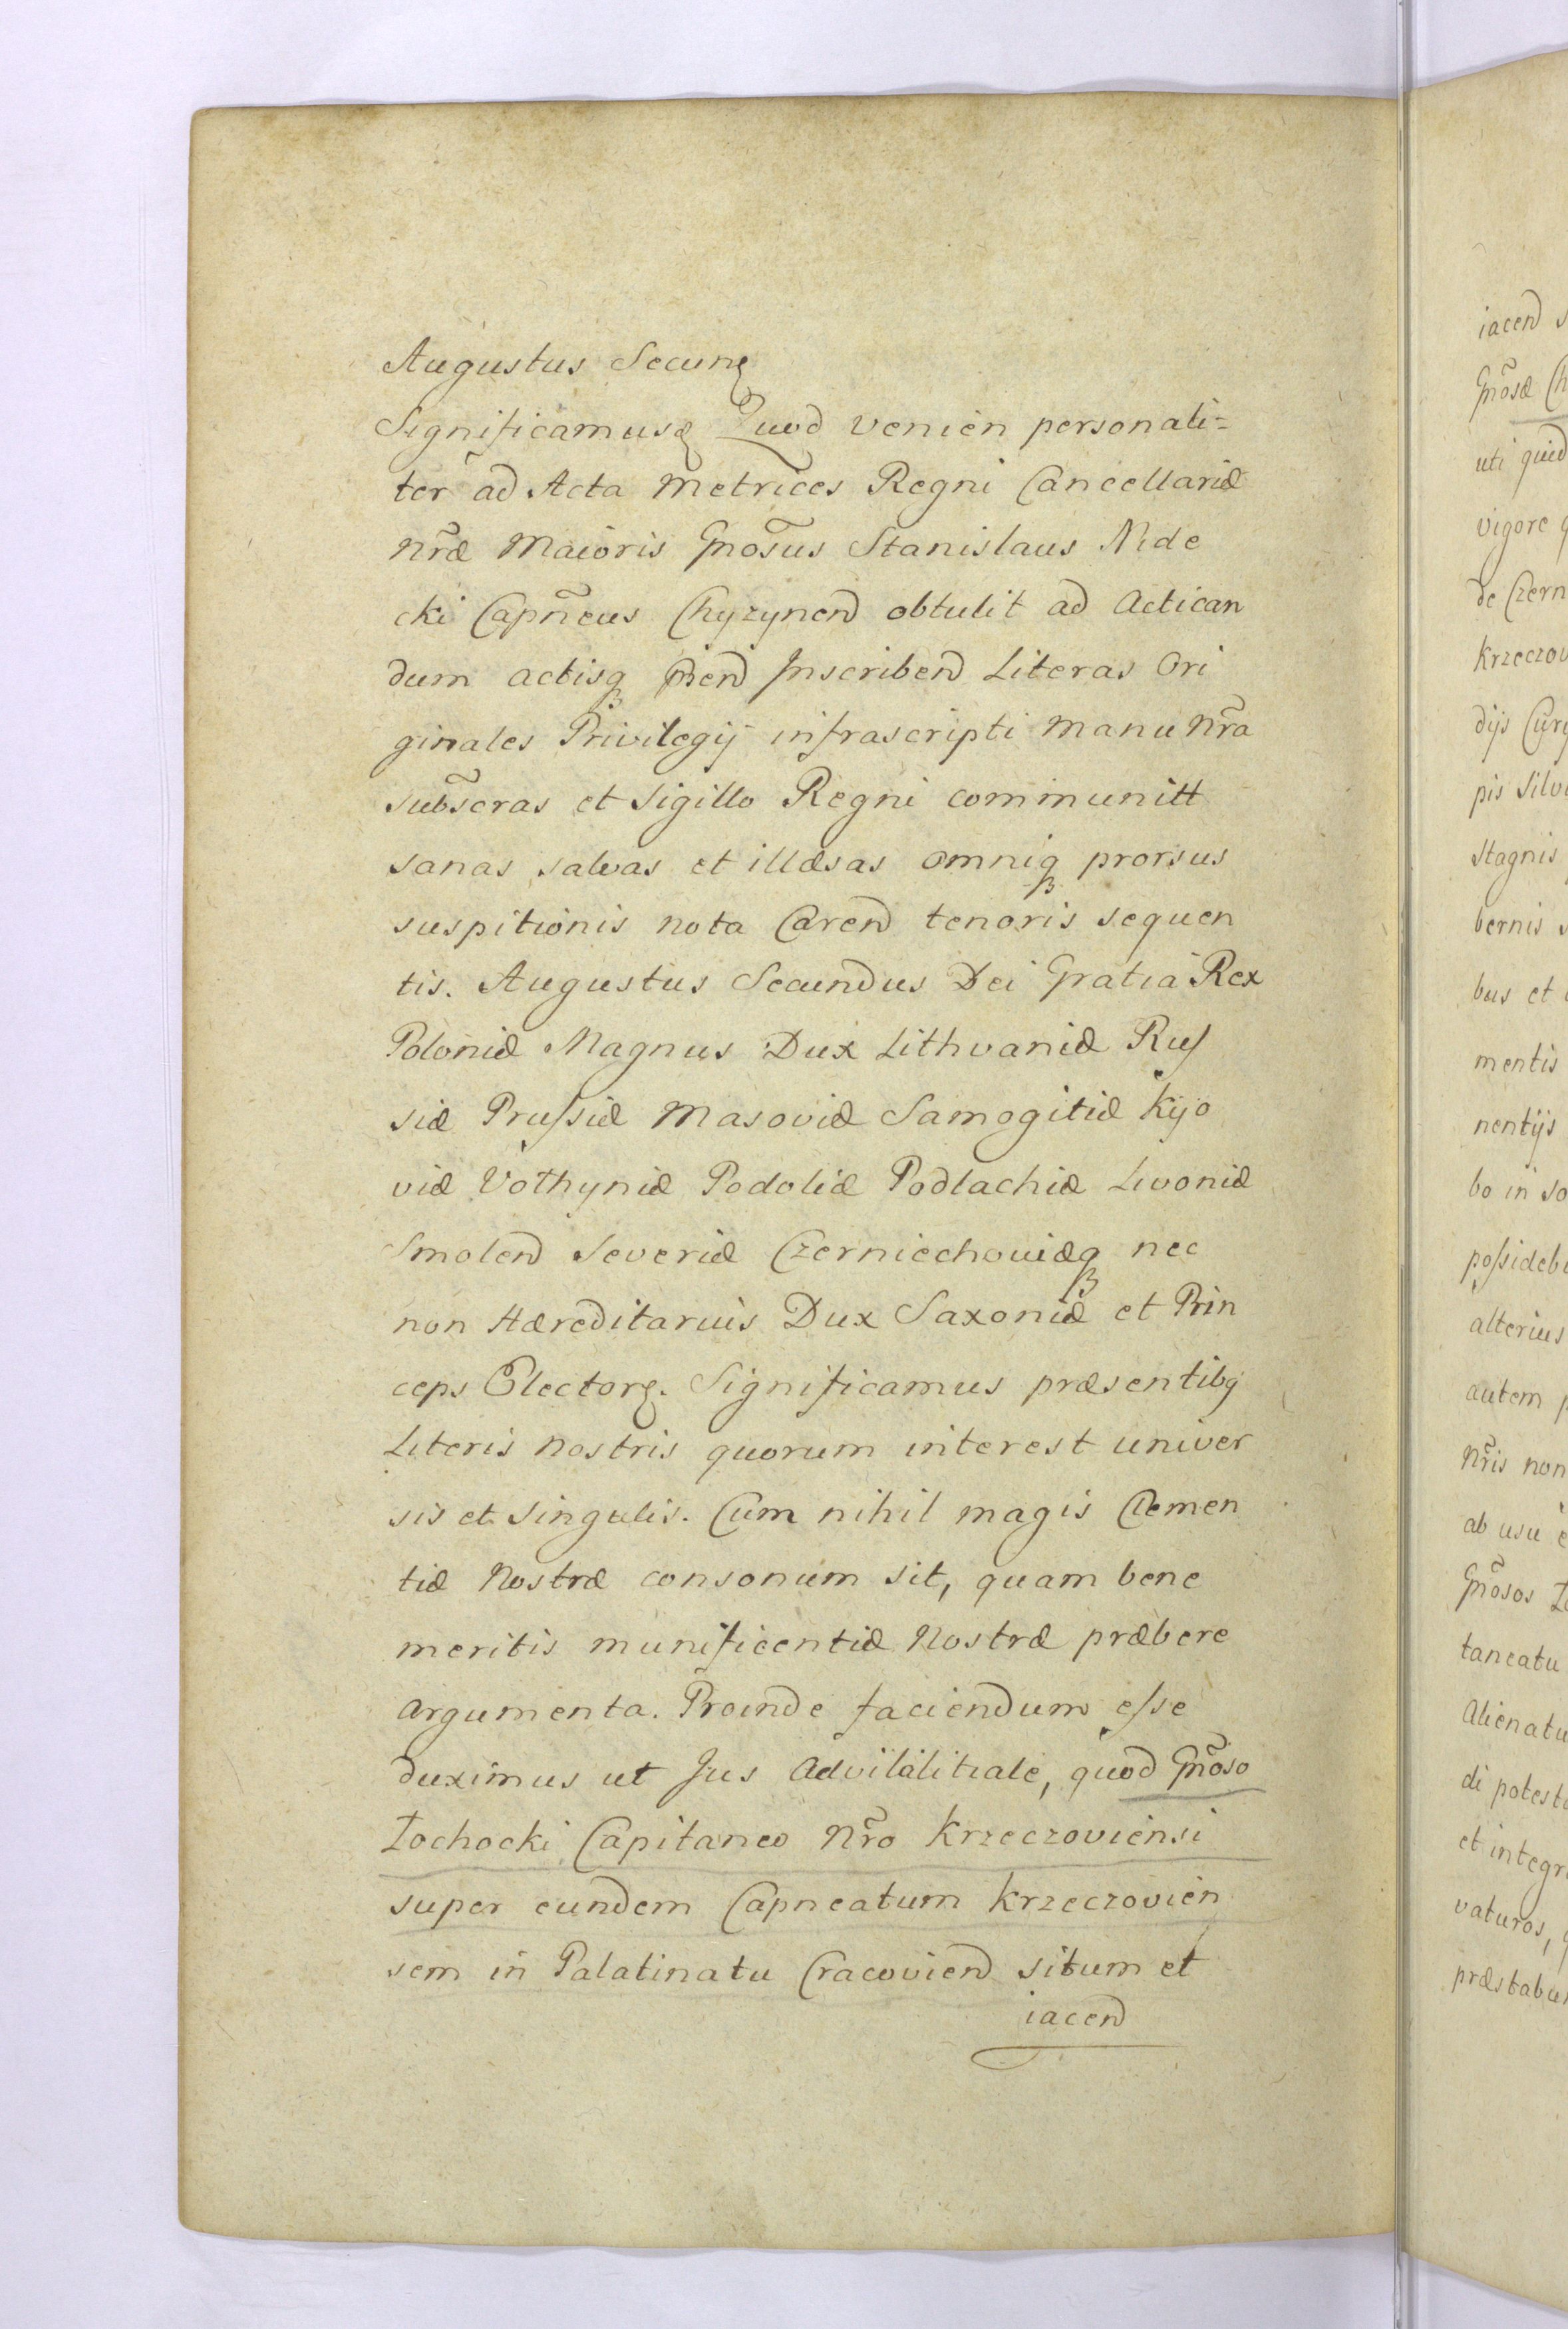 Augustus Secun
Significamus Quod venien personali=
ter ad Acta Metrices Regni Cancellariæ
Nr̃æ Maioris Gnõsus Stanislaus Nide
cki Capñeus Chyzynen obtulit ad Actican
dum actisq Inscriben Literas Ori
ginales Privilegij infrascripti manu Nr̃a
subs̃cras et Sigillo Regni communitt
sanas salvas et illæsas omniq prorsus
suspitionis nota Caren tenoris sequen
tis. Augustus Secundus Dei Gratia Rex
Poloniæ Magnus Dux Lithvaniæ Rus
siæ Prussiæ Masoviæ Samogitiæ Kijo
viæ Volhyniæ Podoliæ Podlachiæ Livoniæ
Smolen Severiæ Czerniechoviæq nec
non Hæreditarius Dux Saxoniæ et Prin
ceps Elector. Significamus præsentibq
Literis Nostris quorum interest univer
sis et singulis. Cum nihil magis Clemen
tiæ Nostræ consonum sit, quam bene
meritis munificentiæ Nostræ præbere
argumenta. Proinde faciendum esse
duximus ut Jus Advitalitiale, quod Gnõso
Łochocki Capitaneo Nr̃o Krzeczoviensi
super eundem Capneatum Krzeczovien
sem in Palatinatu Cracovien situm et
iacen
iacen
Gnõsæ
uti quid
vigore
de Czern
Krzeczov
dijs
pis Silv
Stagnis
bernis
bus et
mentis
nentijs
bo in so
possideb
alterius
autem
Nr̃is non
ab usu
Gnõsos
taneatu
Alienatu
di potest
et integr
vaturos,
præstabu